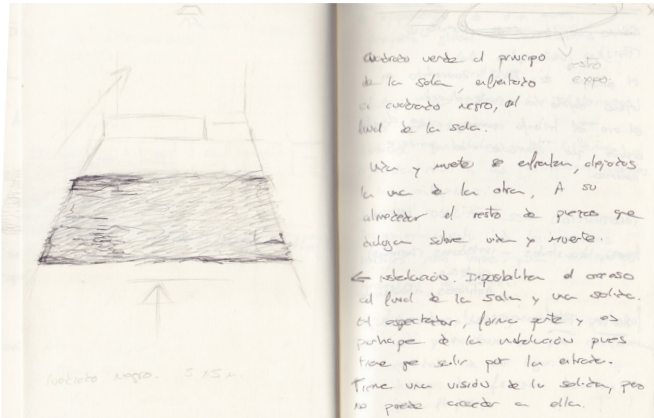 Cuadrado negro.
resto
expo.
Cuadrado verde al principo
de la sala, enfrentado
a cuadrado negro, al
final de la sala.
Vida y muerte se enfrentan, alejados
la una de la otra. A su
alrededor el resto de piezas que
dialogan sobre vida y muerte.
← instalación. Imposibilitan el acceso
al final de la sala y una salida.
El espectador, forma parte y es
partícipe de la instalación pues
tiene que salir por la entrada.
Tiene una visión de la salida, pero
no puede acceder a ella.